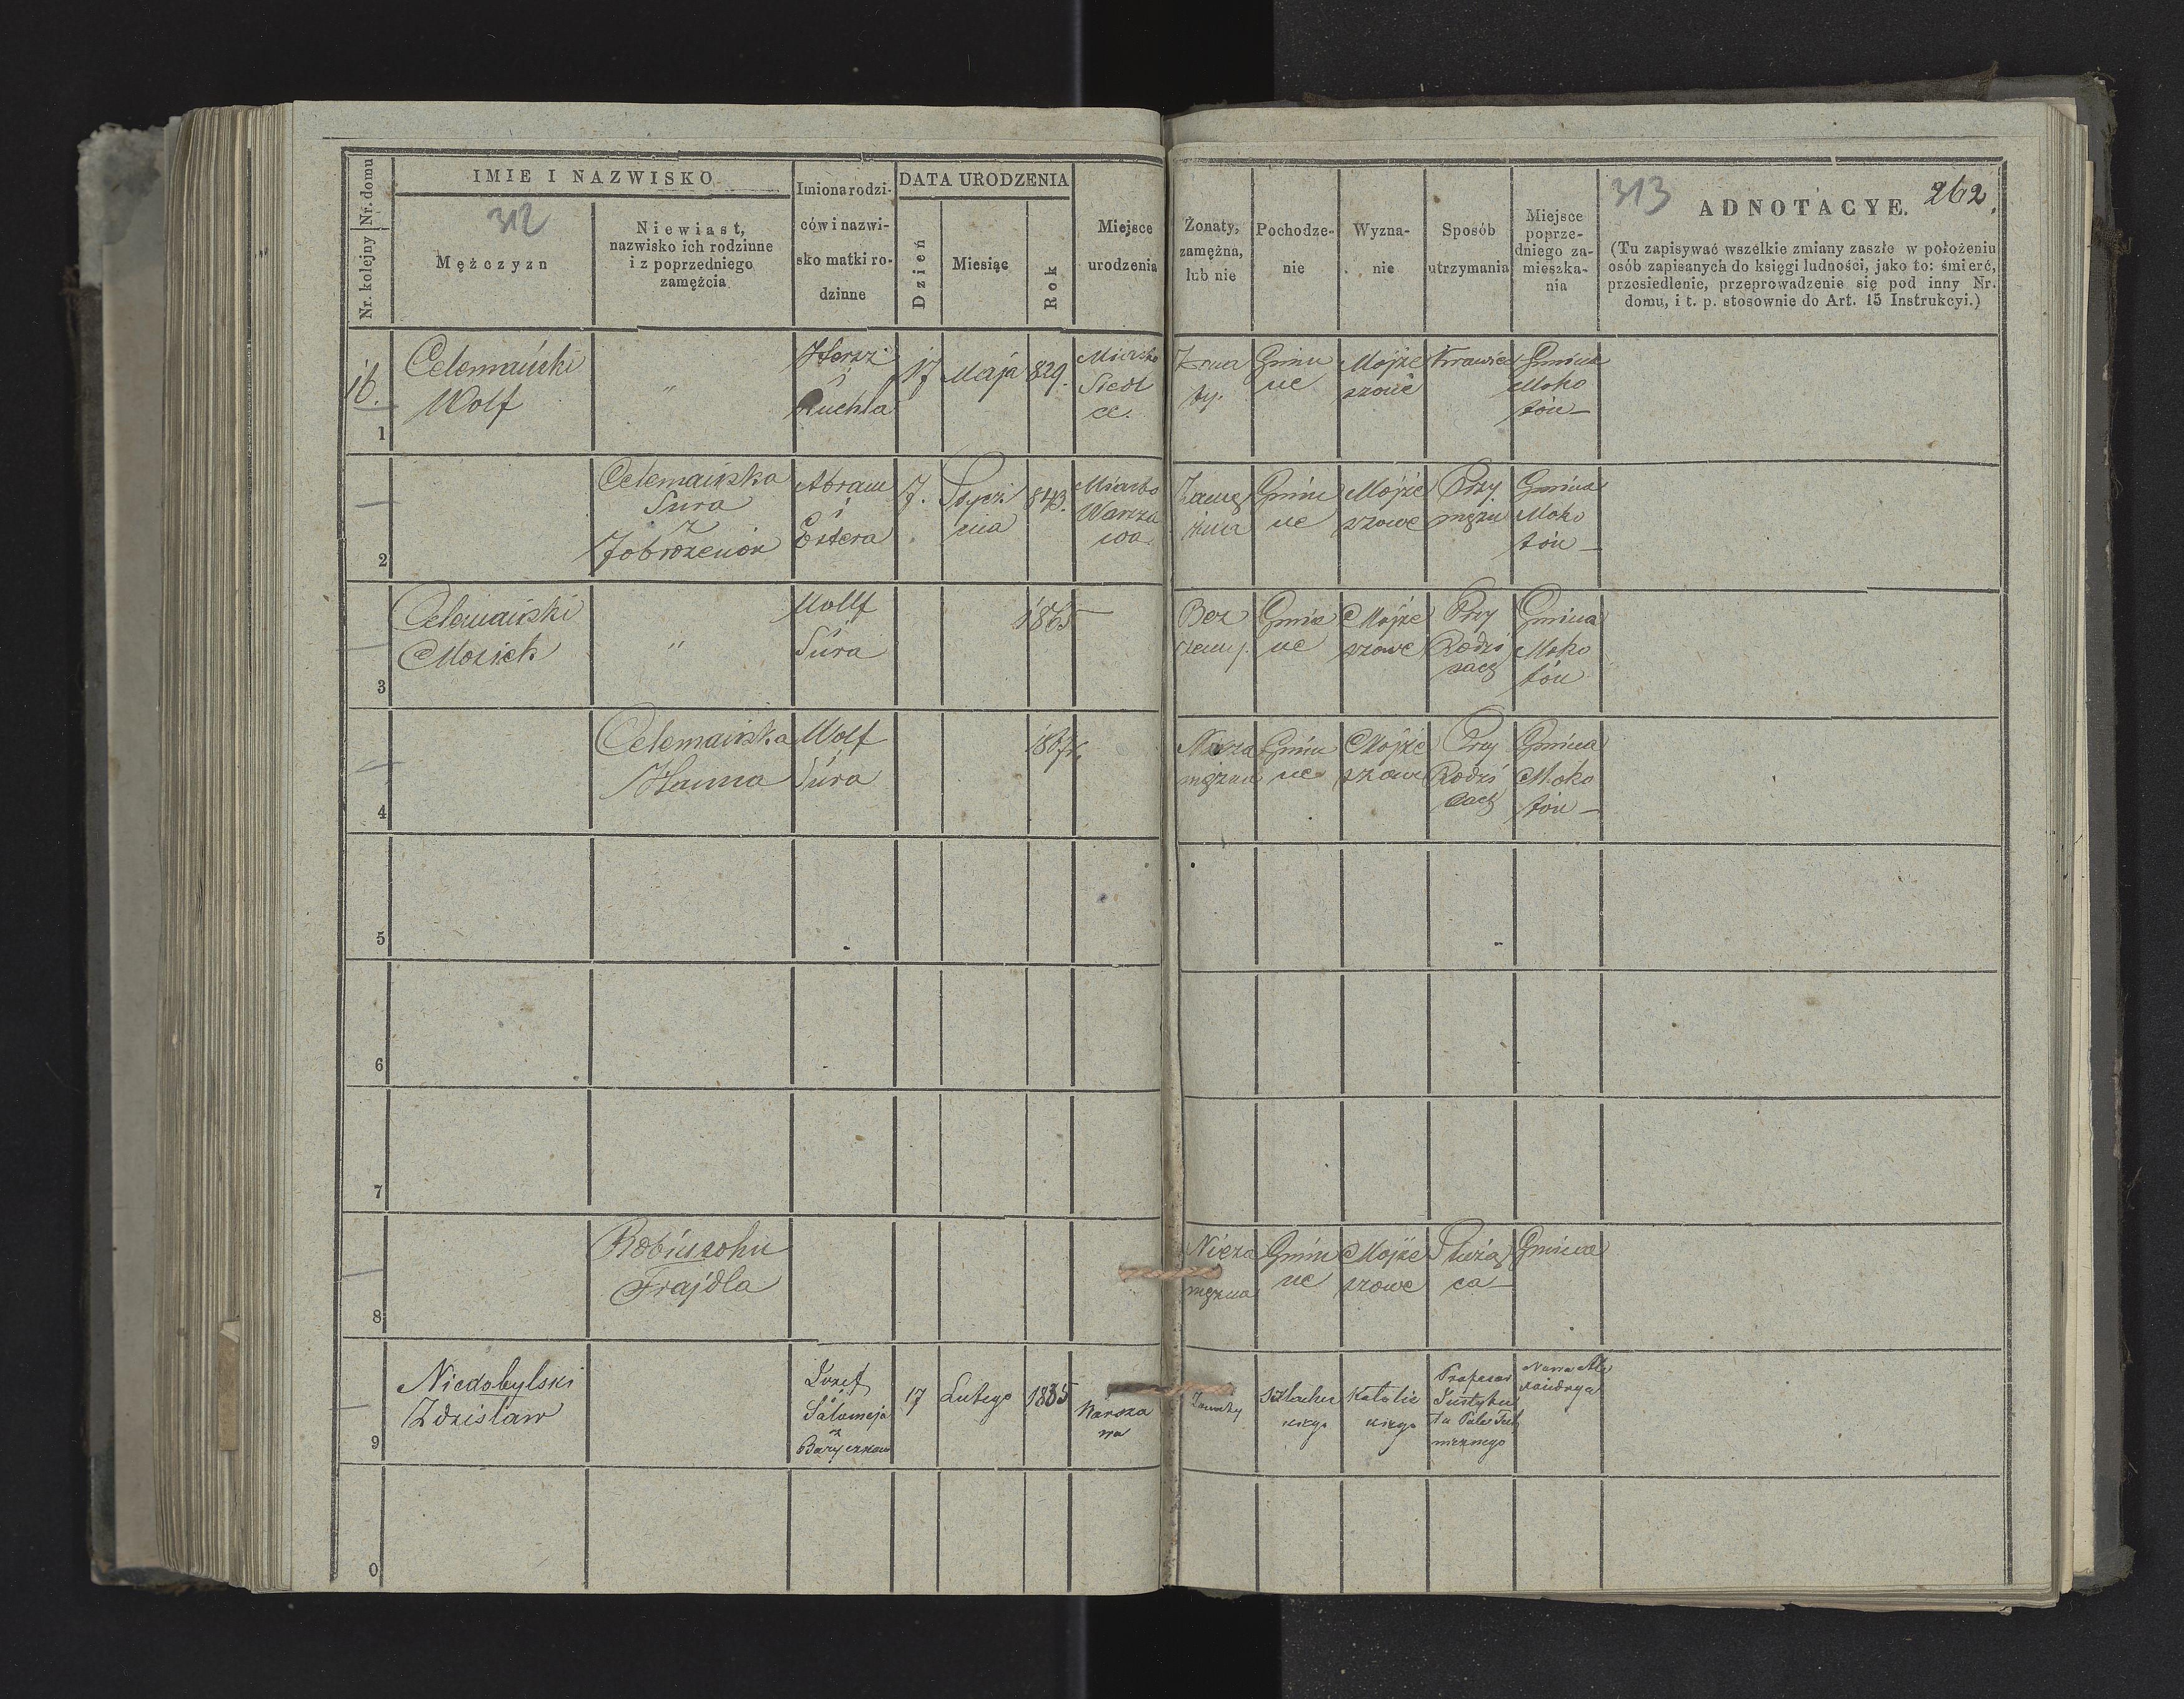 Nr. kolejny Nr. domu
IMIE I NAZWISKO
312
Mężczyzn
Niewiast,
nazwisko ich rodzinne
i z poprzedniego
zamężcia
Imiona rodzi-
ców i nazwi-
sko matki ro-
dzinne
DATA URODZENIA
Dzień
Miesiąc
Rok
Miejsce
urodzenia
Żonaty,
zamężna,
lub nie
Pochodze-
nie
Wyzna-
nie
Sposób
utrzymania
Miejsce
poprze-
dniego za-
mieszka-
nia
313
ADNOTACYE.
262.
(Tu zapisywać wszelkie zmiany zaszłe w położeniu
osób zapisanych do księgi ludności, jako to: śmierć,
przesiedlenie, przeprowadzenie się pod inny Nr.
domu, i t. p. stosownie do Art. 15 Instrukcyi.)
16.
1
Celemański
Wolf
"
i
Ruchla
17
Maja
829.
Miasto
Siedl
ce.
Żona
ty.
Gmin
ne
Mojże
szowe
Krawiec
Gmina
Moko
tów
2
Celemańska
Sura
z
Abram
i
Estera
7.
Stycz
nia
843.
Miasto
Warsza
wa.
Zamę
żna
Gmin
ne
Mojże
szowe
Przy
mężu
Gmina
Moko
tów
3
Celemański
Mosiek
"
Wolf
i
Sura
1865
Bez
żenny.
Gmin
ne
Mojże
szowe
Przy
Rodzi
cach
Gmina
Moko
tów
4
Celemańska
Hanna
Wolf
Sura
Nieza
mężna
Gmin
ne
Mojże
szowe
Przy
Rodzi
cach
Gmina
Moko
tów
5
6
7
8
Robinsohn
Frajdla
Nieza
mężna
Gmin
ne
Mojże
szowe
Służą
ca
Gmina
9
Niedobylski
Zdzisław
Józef
i
Salomeja
z
17
Lutego
1835
Warsza
wa
Żonaty
Szlachec
kiego
Katolic
kiego
Profesor
Instytu
tu Pole Tech
nicznego
Nowa Ale
xandrya
0